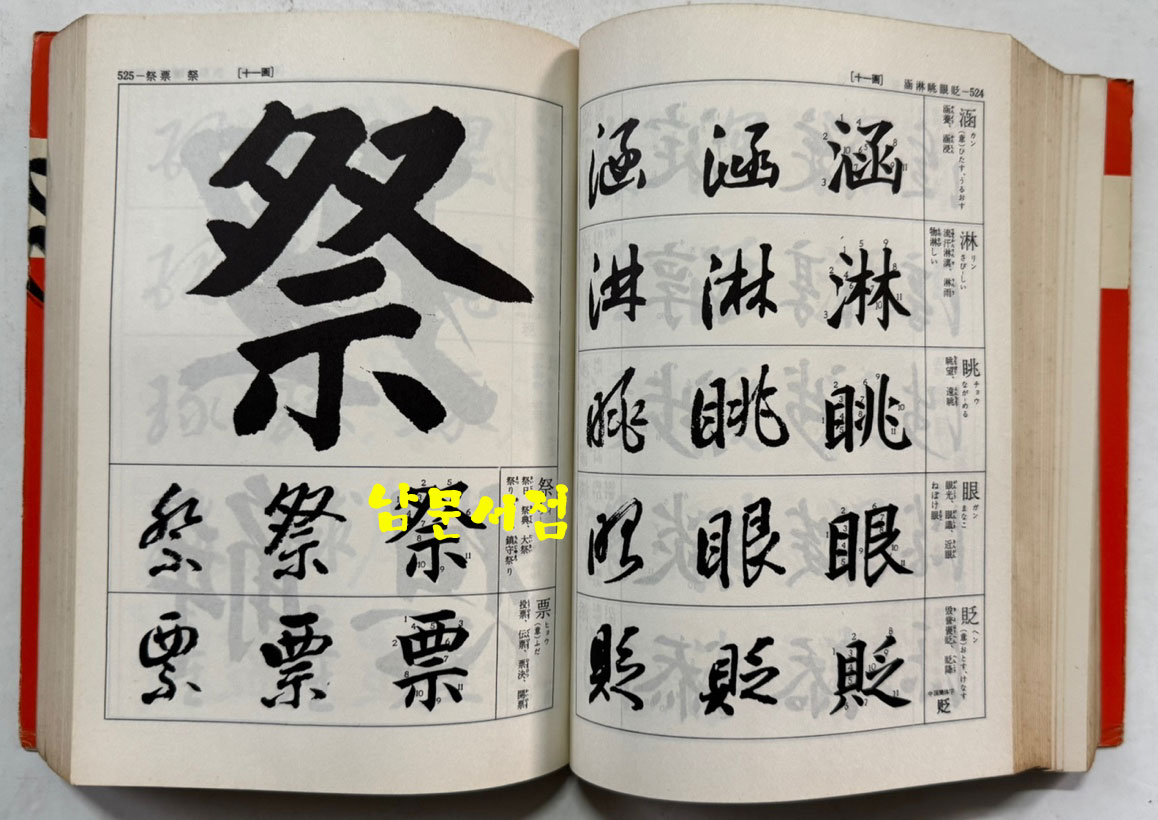 函淋眺眼貶—524
[十一画]
涵 カン
(意)ひたす、うるおす
涵養、涵浸
涵 涵 涵
淋 リン
さびしい
流汗淋漓、淋雨
物淋しい
淋 淋 淋
眺 チョウ
ながめる
眺望、遠眺
眺 眺 眺
眼 ガン
まなこ
眼光、眼識、近眼
ねぼけ眼
眼 眼 眼
貶 ヘン
(意)おとす、けなす
毀誉褒貶、貶降
贬
貶 貶 貶
525—祭票 祭 [十一画]
祭
祭
祭日、祭典、大祭
祭り、鎮守祭り
祭 祭 祭
남문서점
票 ヒョウ
(意)ふだ
投票、伝票、票決、開票
票 票 票